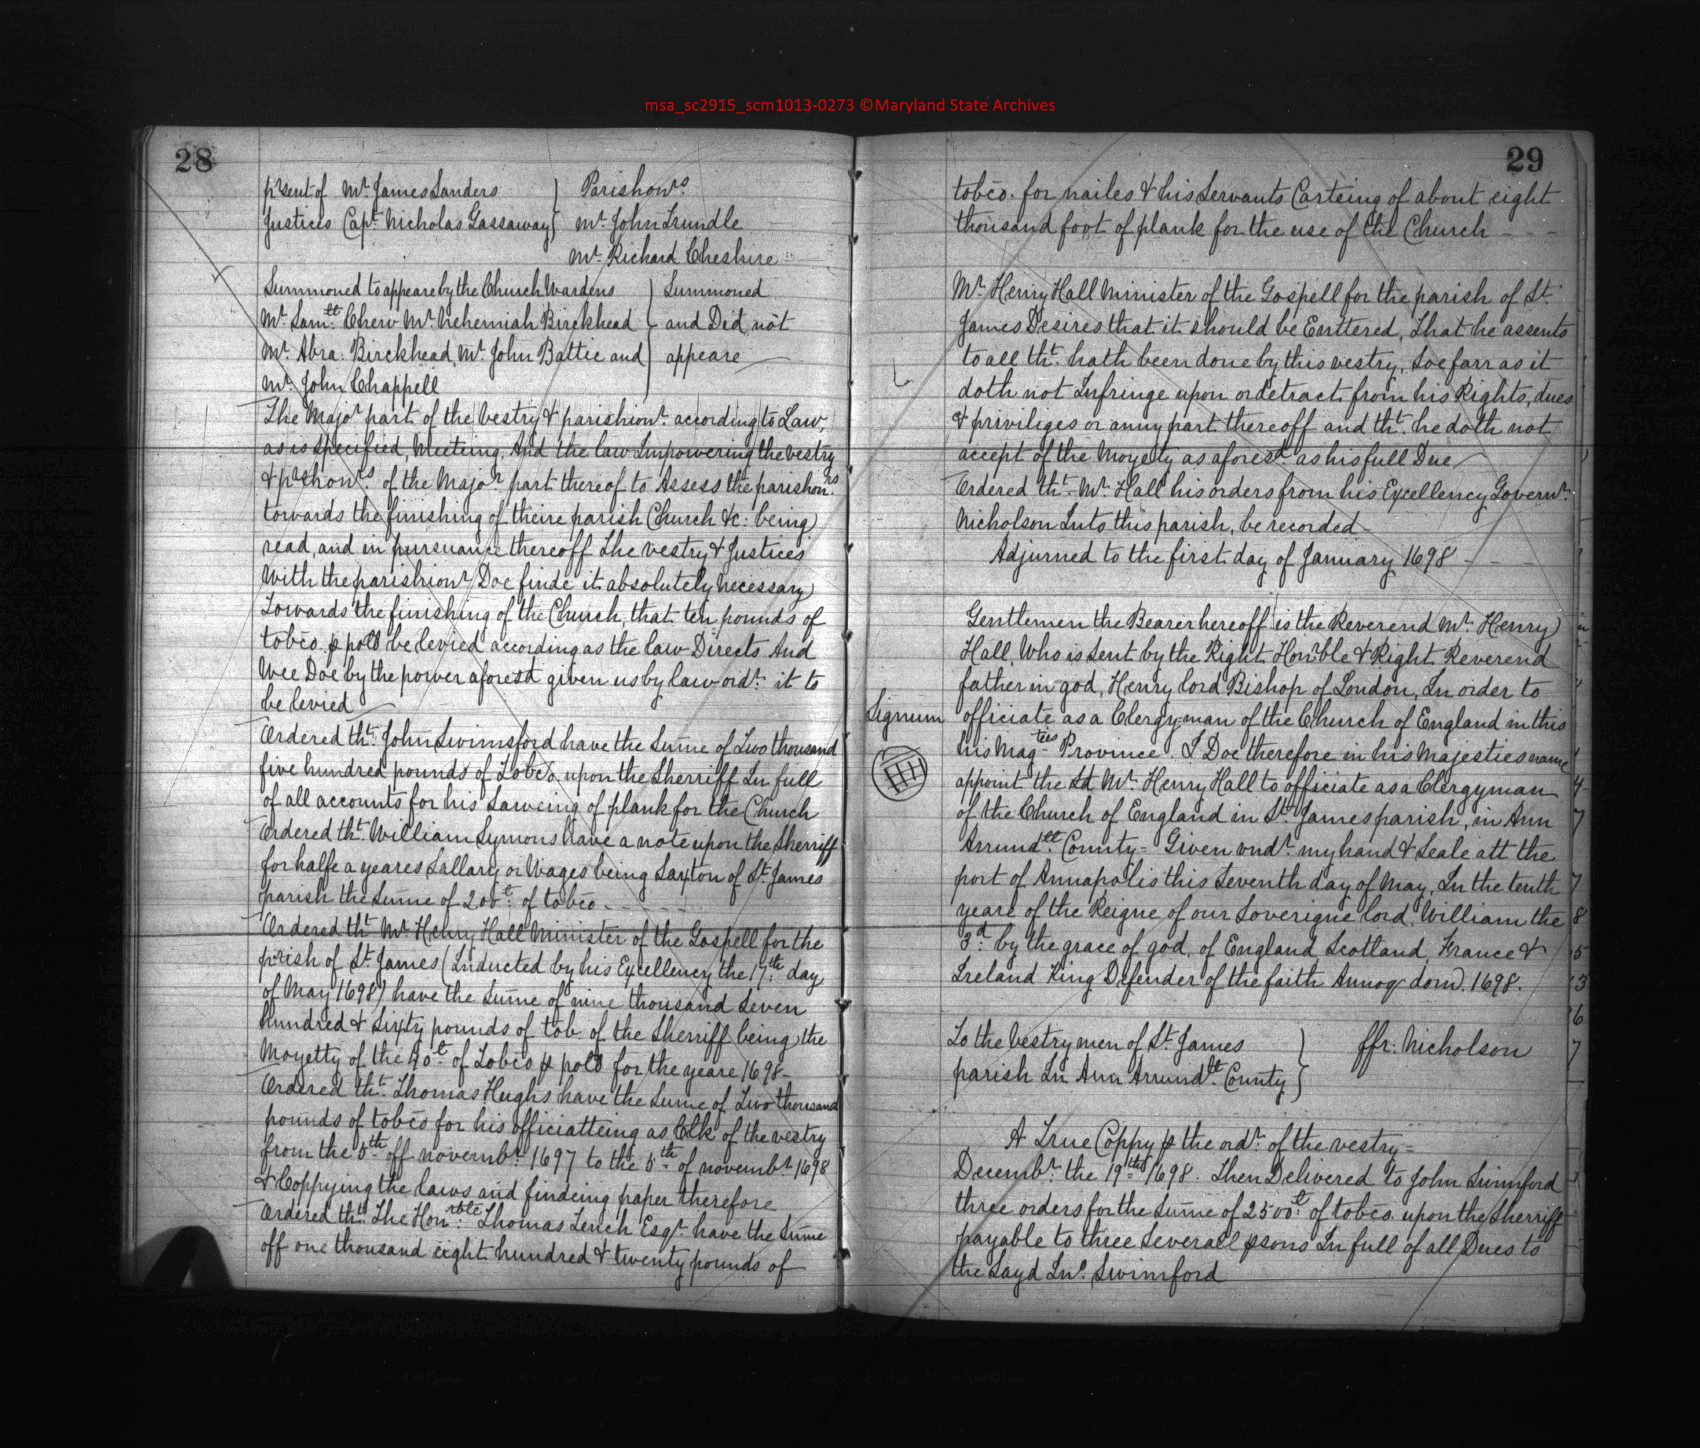 msa_sc2915_scm1013-0273 ©Maryland State Archives
28
prsent of Mr. James Sanders } Parishonrs
Justices Capt. Nicholas Gassaway } Mr. John Trundle
Mr. Richard Cheshire
Summoned to appeare by the Church Wardens } Summoned
Mr. Samll. Chew Mr. Nehemiah Birckhead } and Did not
Mr. Abra: Birckhead, Mr. John Battie and } appeare
Mr. John Chappell
The Majo.r part of the vestry & parishionr. according to Law,
as is specified, Meeting, And the law Impowering the vestry
& prshonrs of the Majo.r part thereof to Assess the parishonrs
towards the finishing of theire parish Church &c: being
read, and in pursuance thereoff The vestry & Justices
With the parishionr. Doe finde it absolutely necessary
Towards the finishing of the Church, that ten pounds of
tobco. p poll be levied according as the law Directs And
Wee Doe by the power aforesd given us by law ordr. it to
be levied
Ordered tht. John Swinsford have the Sume of Two thousand
five hundred pounds of Tobco. upon the Sherriff In full
of all accounts for his Saweing of plank for the Church
Ordered tht. William Symons have a note upon the Sherriff
for halfe a yeares Sallary or Wages being Saxton of St. James
parish the Sume of 200lt. of tobco
Ordered tht. Mr. Henry Hall Minister of the Gospell for the
prish of St. James (Inducted by his Excellency the 17th day
of May 1698) have the Sume of nine thousand Seven
hundred & Sixty pounds of tob. of the Sherriff being the
Moyetty of the 40lt. of Tobco p poll for the yeare 1698
Ordered tht. Thomas Hughs have the Sume of Two thousand
pounds of tobco for his officiatteing as Clk of the vestry
from the 5th off novembr. 1697 to the 5th of novembr. 1698
& Coppying the laws and findeing paper therefore
Ordered tht. The Honrble. Thomas Tench Esqr. have the Sume
off one thousand eight hundred & twenty pounds of
29
tobco. for nailes & his Servants Carteing of about eight
thousand foot of plank for the use of the Church
Mr. Henry Hall Minister of the Gospell for the parish of St.
James Desires that it should be Enttered, That he assents
to all tht. hath been done by this vestry, Soe farr as it
doth not Infringe upon or detract from his Rights, dues
& priviliges or anny part thereoff and tht. he doth not
accept of the Moyety as aforesd as his full Due
Ordered tht. Mr. Hall his orders from his Excellency Governr.
Nicholson Into this parish, be recorded
Adjurned to the first day of January 1698
Gentlemen the Bearer hereoff is the Reverend Mr. Henry
Hall, Who is Sent by the Right Honrble & Right Reverend
father in god, Henry lord Bishop of London, In order to
Signum officiate as a Clergyman of the Church of England in this
his Magties Province I Doe therefore in his Majesties name
HH appoint the sd Mr. Henry Hall to officiate as a Clergyman
of the Church of England in St. James parish, in Ann
Arrundll County = Given vndr. my hand & Seale att the
port of Annapolis this Seventh day of May, In the tenth
yeare of the Reigne of our Soverigne lord William the
3d. by the grace of god, of England Scotland, France &
Ireland King Defender of the faith Annoq dom. 1698.
To the vestrymen of St. James } ffr. Nicholson
parish In Ann Arrundll. County }
A True Coppy p the ordr. of the vestry =
Decembr. the 19th 1698. Then Delivered to John Swinsford
three orders for the Sume of 2500lt. of tobco. upon the Sherriff
payable to three Severall psons In full of all Dues to
the Sayd Jno. Swinsford